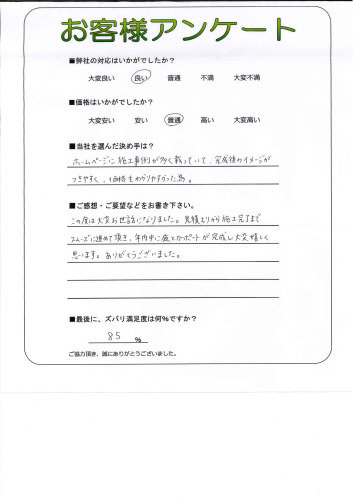 お客様アンケート
■弊社の対応はいかがでしたか？
大変良い 良い 普通 不満 大変不満
■価格はいかがでしたか？
大変安い 安い 普通 高い 大変高い
■当社を選んだ決め手は？
ホームページに施工事例が多く載っていて、完成後のイメージが
つきやすく、価格もわかりやすかった為。
■ご感想・ご要望などをお書き下さい。
この度は大変お世話になりました。見積もりから施工完了まで
スムーズに進めて頂き、年内中に庭とカーポートが完成し大変嬉しく
思います。ありがとうございました。
■最後に、ズバリ満足度は何％ですか？
85 ％
ご協力頂き、誠にありがとうございました。